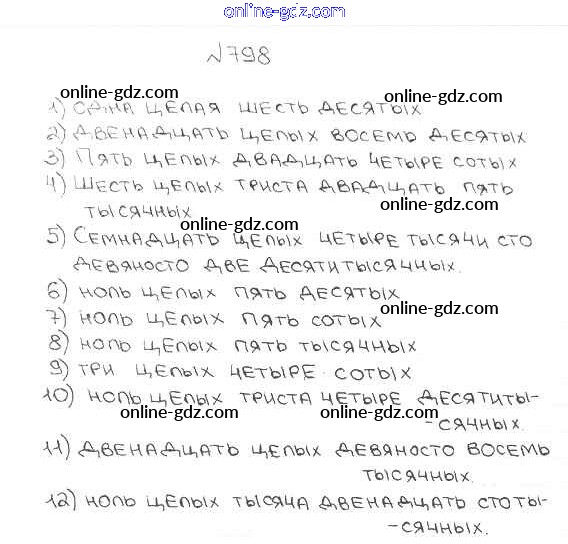 online-gdz.com
№798
online-gdz.com online-gdz.com
1) ОДНА ЦЕЛАЯ ШЕСТЬ ДЕСЯТЫХ
2) ДВЕНАДЦАТЬ ЦЕЛЫХ ВОСЕМЬ ДЕСЯТЫХ
online-gdz.com online-gdz.com
3) ПЯТЬ ЦЕЛЫХ ДВАДЦАТЬ ЧЕТЫРЕ СОТЫХ
4) ШЕСТЬ ЦЕЛЫХ ТРИСТА ДВАДЦАТЬ ПЯТЬ
online-gdz.com
ТЫСЯЧНЫХ
online-gdz.com
5) СЕМНАДЦАТЬ ЦЕЛЫХ ЧЕТЫРЕ ТЫСЯЧИ СТО
ДЕВЯНОСТО ДВЕ ДЕСЯТИТЫСЯЧНЫХ.
6) НОЛЬ ЦЕЛЫХ ПЯТЬ ДЕСЯТЫХ
online-gdz.com online-gdz.com
7) НОЛЬ ЦЕЛЫХ ПЯТЬ СОТЫХ
8) НОЛЬ ЦЕЛЫХ ПЯТЬ ТЫСЯЧНЫХ
9) ТРИ ЦЕЛЫХ ЧЕТЫРЕ СОТЫХ
10) НОЛЬ ЦЕЛЫХ ТРИСТА ЧЕТЫРЕ ДЕСЯТИТЫ-
online-gdz.com online-gdz.com
-СЯЧНЫХ.
11) ДВЕНАДЦАТЬ ЦЕЛЫХ ДЕВЯНОСТО ВОСЕМЬ
online-gdz.com
ТЫСЯЧНЫХ.
12) НОЛЬ ЦЕЛЫХ ТЫСЯЧА ДВЕНАДЦАТЬ СТОТЫ-
online-gdz.com online-gdz.com
-СЯЧНЫХ.